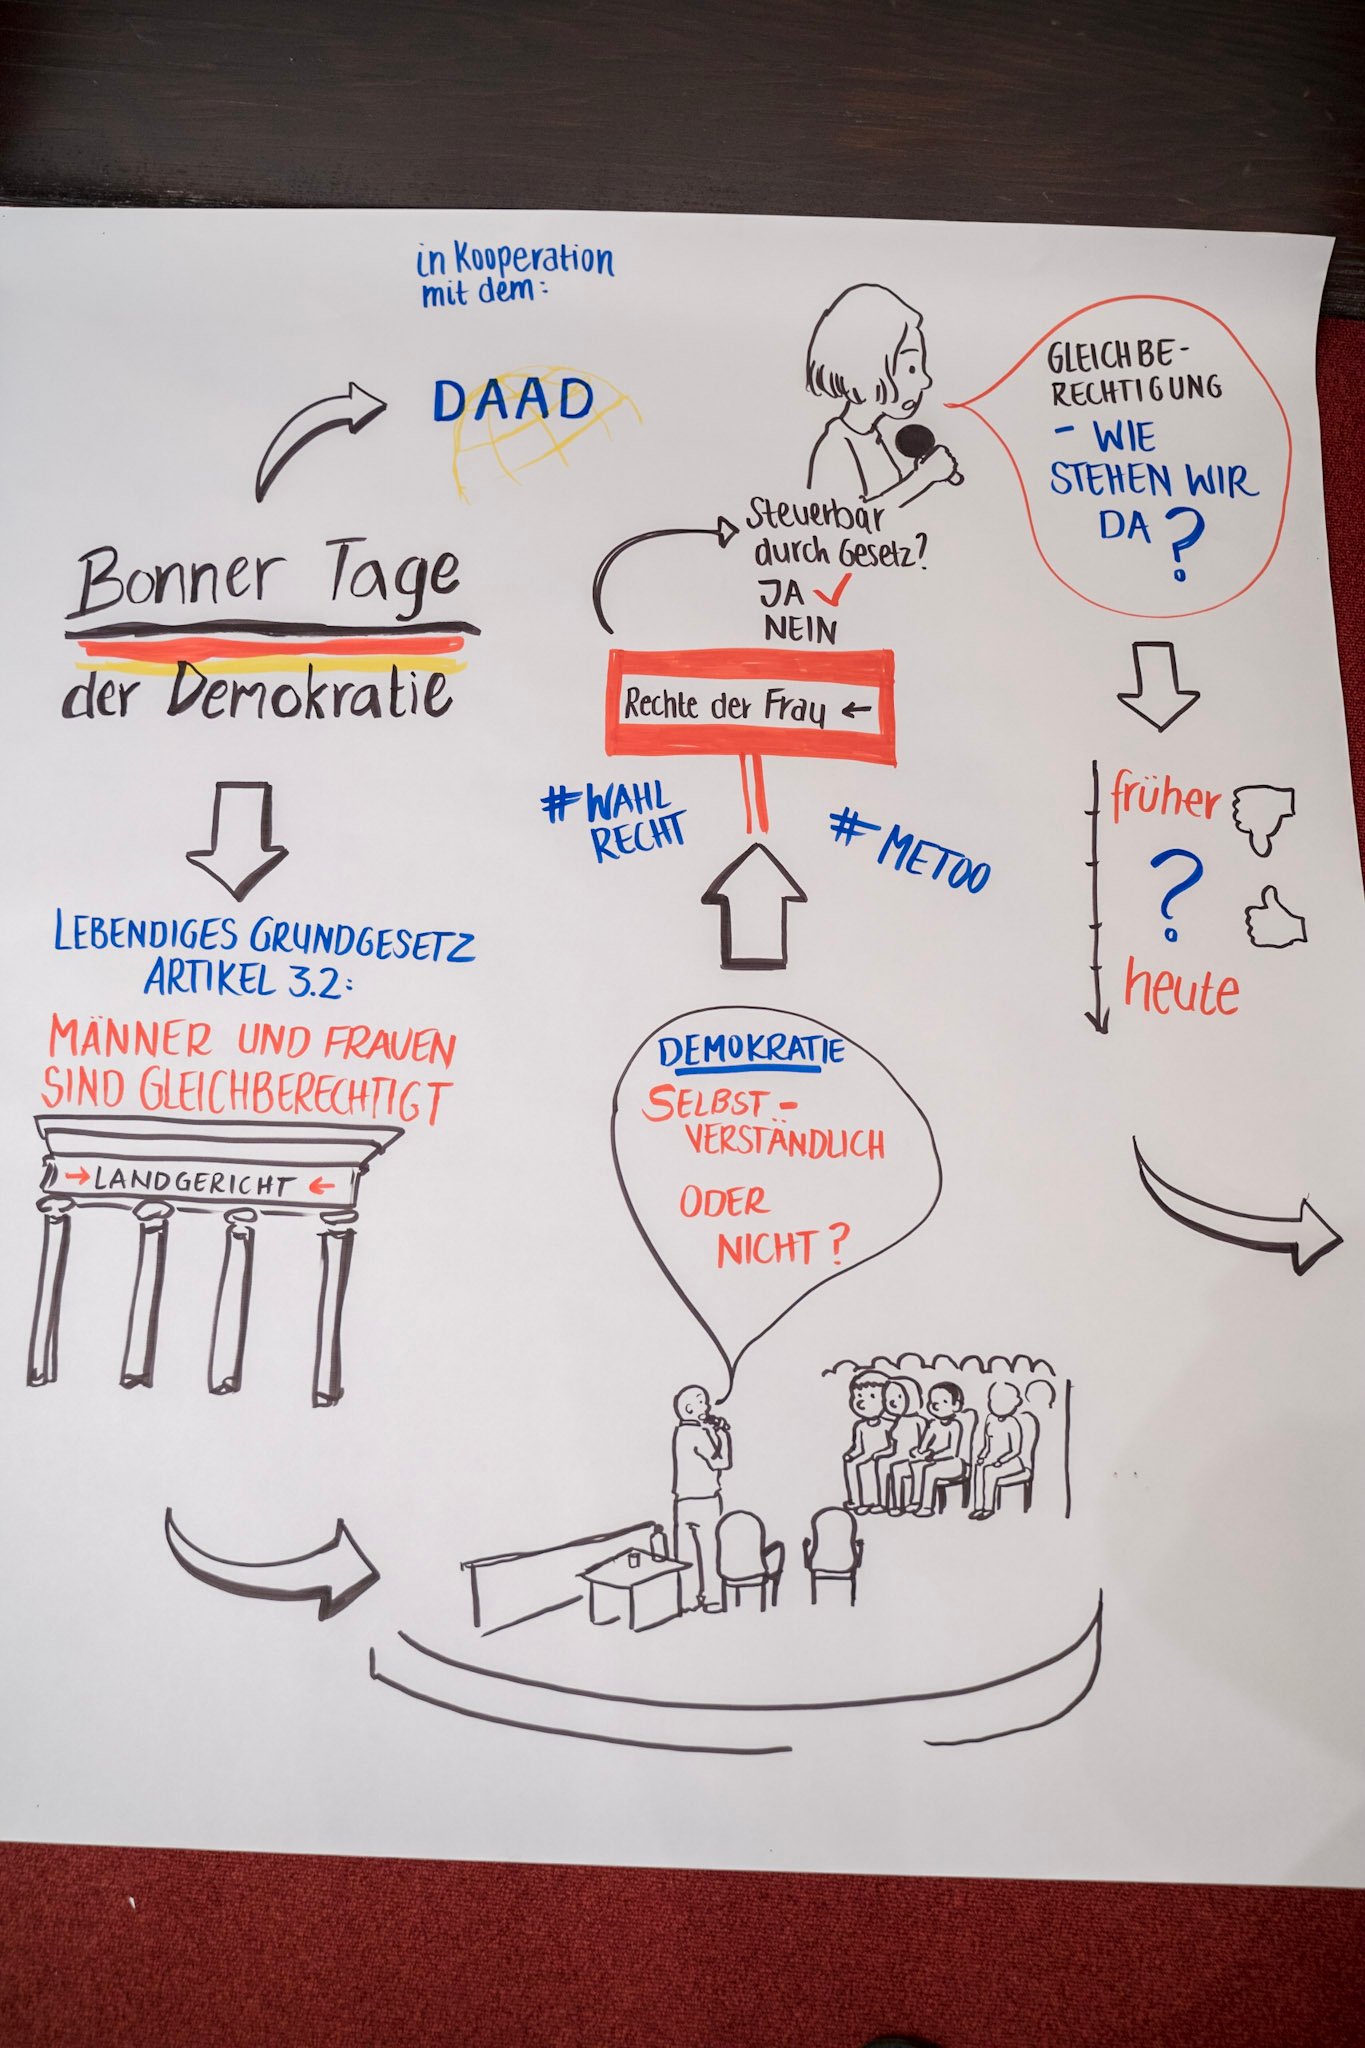 in Kooperation
mit dem:
DAAD
Bonner Tage
der Demokratie
LEBENDIGES GRUNDGESETZ
ARTIKEL 3.2:
MÄNNER UND FRAUEN
SIND GLEICHBERECHTIGT
→ LANDGERICHT ←
DEMOKRATIE
SELBST-
VERSTÄNDLICH
ODER
NICHT?
#WAHL
RECHT
#METOO
Rechte der Frau ←
Steuerbar
durch Gesetz?
JA ✓
NEIN
GLEICHBE-
RECHTIGUNG
- WIE
STEHEN WIR
DA?
früher
?
heute